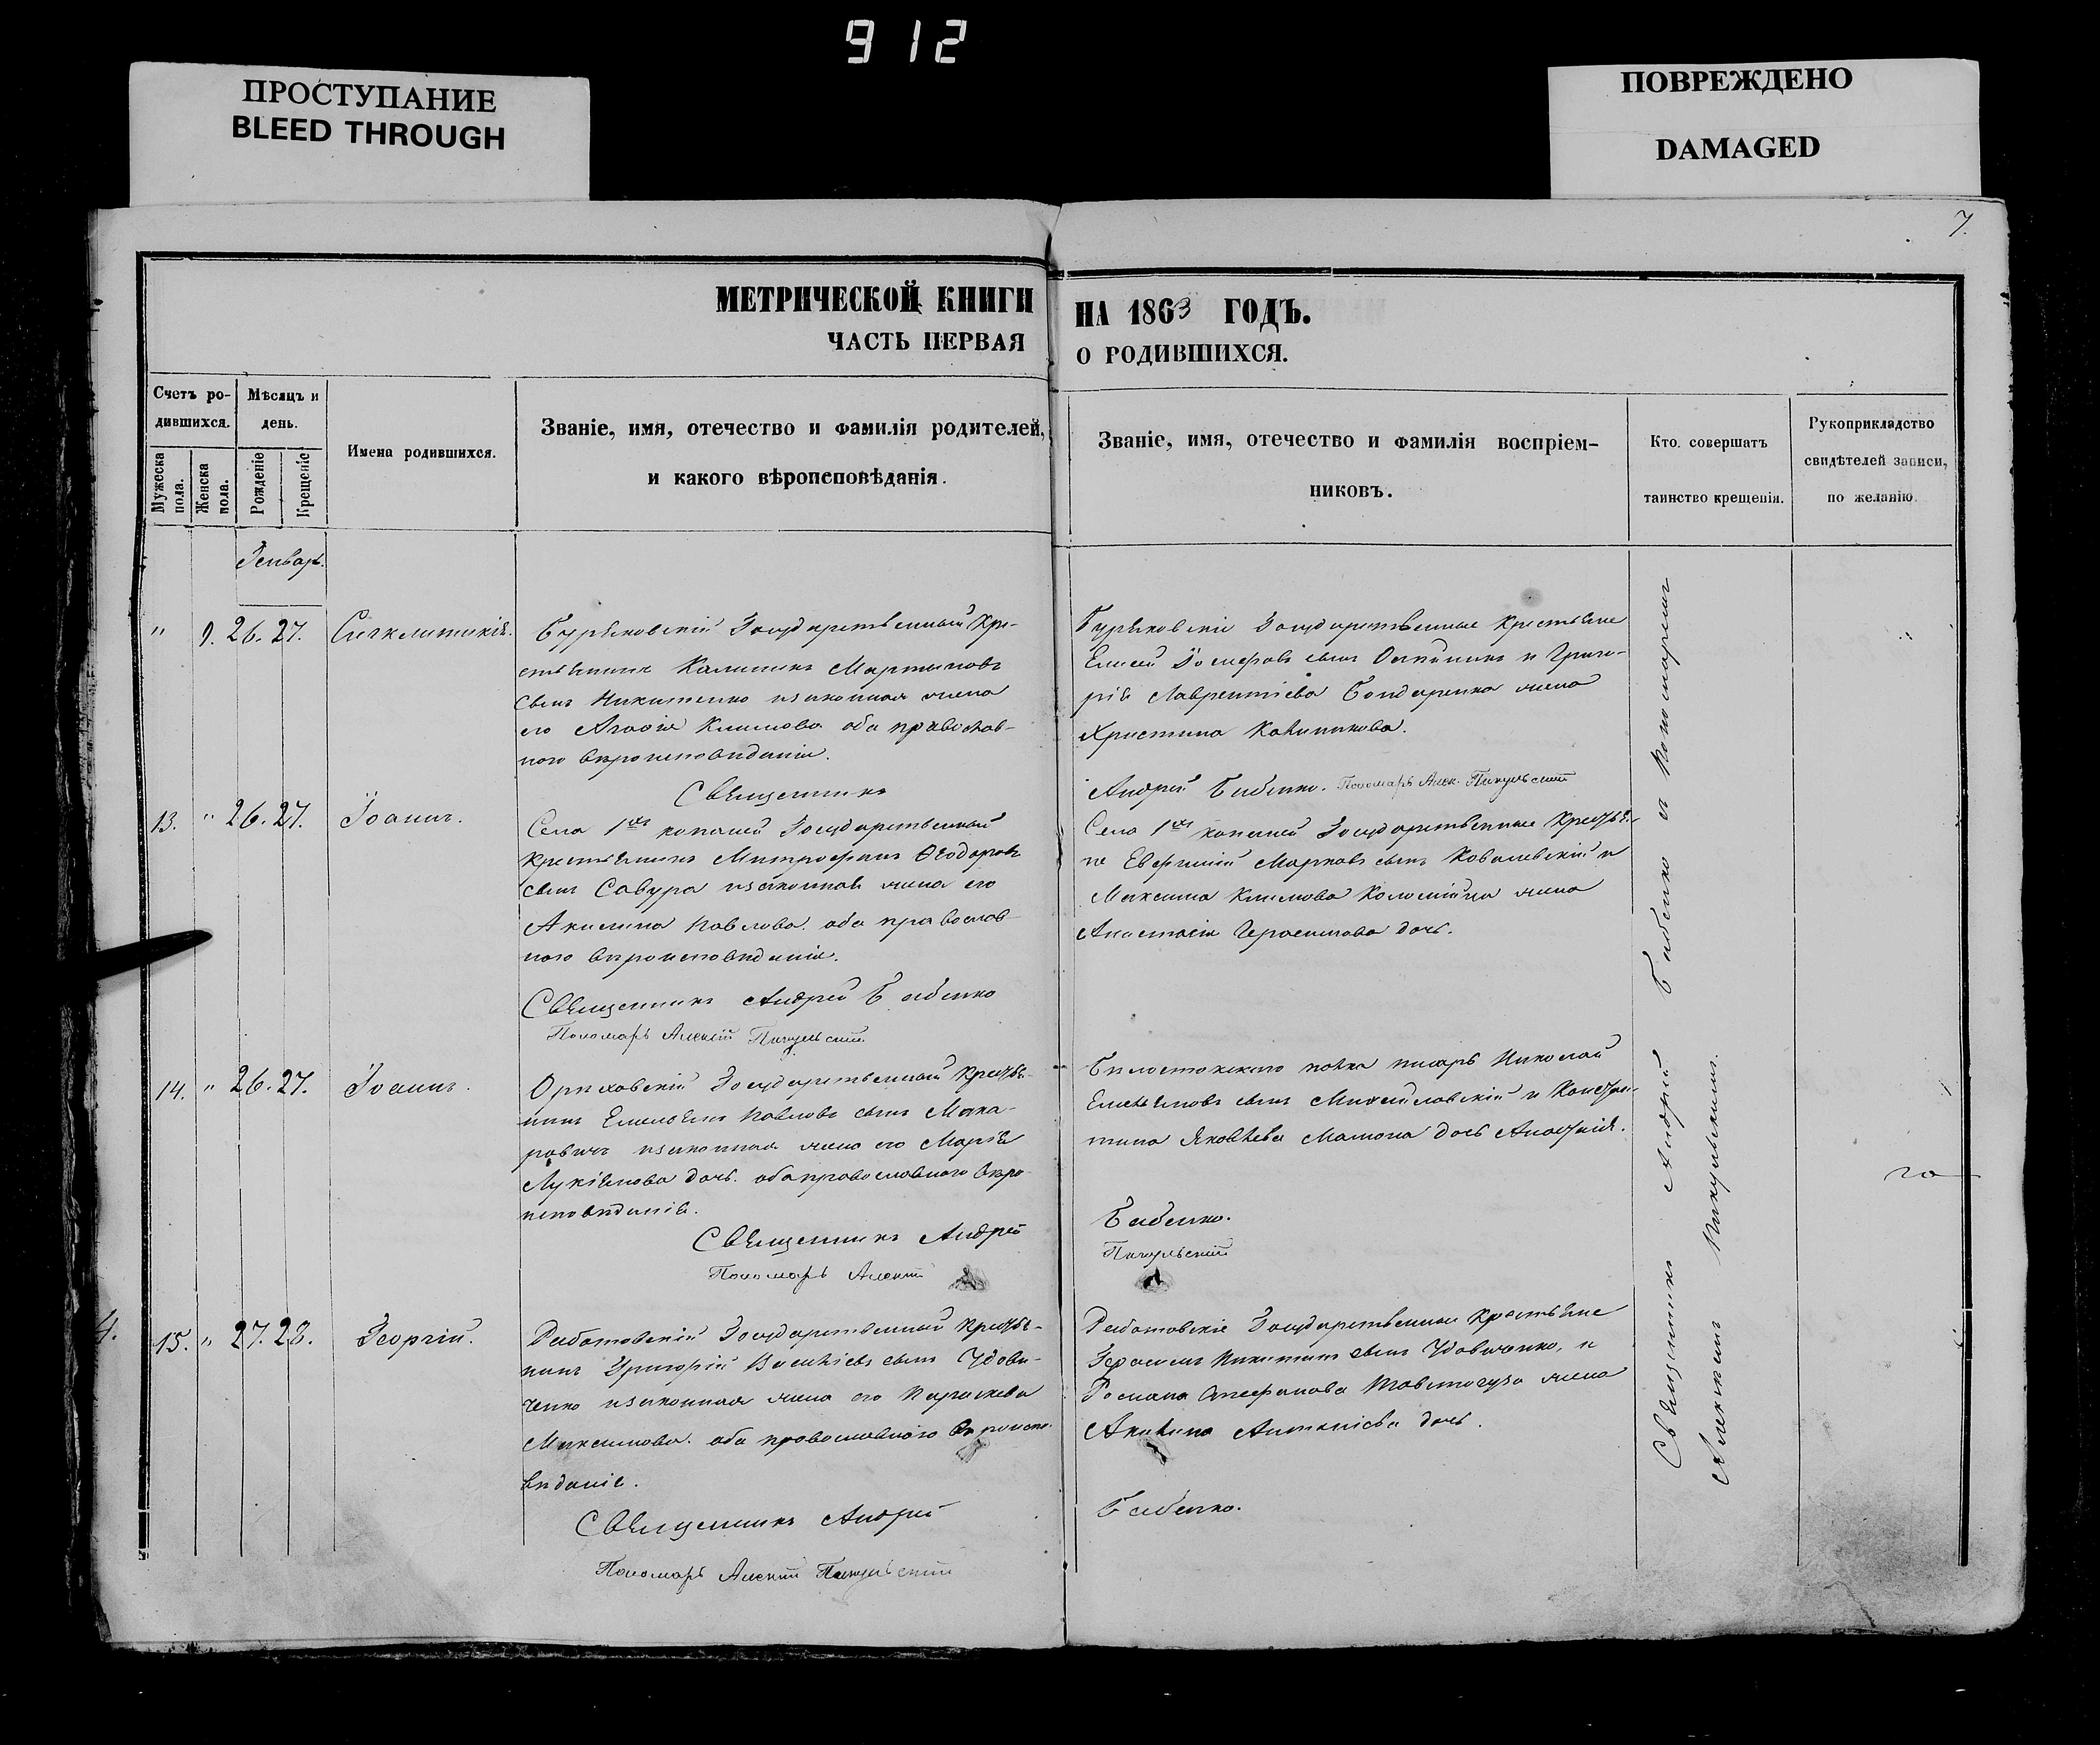 912
ПРОСТУПАНИЕ
BLEED THROUGH
ПОВРЕЖДЕНО
DAMAGED
7.
МЕТРИЧЕСКОЙ КНИГИ
ЧАСТЬ ПЕРВАЯ
НА 1863 ГОДЪ.
О РОДИВШИХСЯ.
Счетъ ро-
дившихся.
Мужеска
пола.
Женска
пола.
Мѣсяцъ и
день.
Рожденіе
Крещеніе
Имена родившихся.
Званіе, имя, отечество и фамилія родителей,
и какого вѣроисповѣданія.
Званіе, имя, отечество и фамилія воспріем-
никовъ.
Кто совершатъ
таинство крещенія.
Рукоприкладство
свидѣтелей записи,
по желанію.
Генварь.
" 9. 26. 27. Сигклитикія.
Государственный Кре-
стьянинъ Калиникъ Мартиновъ
сынъ Никитенко изаконная жена
его Агафія Климова оба православ-
ного вѣроисповиданія.
Священникъ
Государственные Крестьяне
Елисей Іосифовъ сынъ и Григо-
рія Лаврентіева Бондаренка жена
Христина Калиникова.
Андрей Бабенко. Пономарь Алек. Пикульскій
13. " 26. 27. Іоаннъ.
Села 1хъ копаней Государственный
Крестьянинъ Митрофанъ Ѳеодоровъ
сынъ Савура изаконная жена его
Акилина Павлова. оба православ-
ного вѣроисповиданія.
Священникъ Андрей Бабенко
Пономарь Алексій Пикульскій
Села 1хъ копаней Государственные Крестья-
не Евфимій Марковъ сынъ Ковалевскій и
Максима Климова Коломійца жена
Анастасія Герасимова дочь.
14. " 26. 27. Іоаннъ.
Ориховскій Государственный Крестья-
нинъ Емельянъ Павловъ сынъ Мака-
ровичъ изаконная жена его Марія
Лукіянова дочь. оба православного вѣро-
исповиданія.
Священникъ Андрей
Пономарь Алексій
Билостокского полка писарь Николай
Емельяновъ сынъ Михайловскій и Констан-
тина Яковлева Мамона дочь Анастасія.
Бабенко.
Пикульскій
15. " 27. 28. Георгій.
Государственный Крестья-
нинъ Григорій Василіевъ сынъ Удови-
ченко изаконная жена его Параскева
Максимова. оба православного вѣроиспо-
виданіе.
Священникъ Андрей
Пономарь Алексій Пикульскій
Государственные Крестьяне
Герасимъ Никитинъ сынъ Удовиченко, и
Романа Стефанова Товстогуза жена
Акилина Антоніева дочь.
Бабенко.
Священникъ Андрей Бабенко съ пономаремъ
Алексіемъ Пикульскимъ.